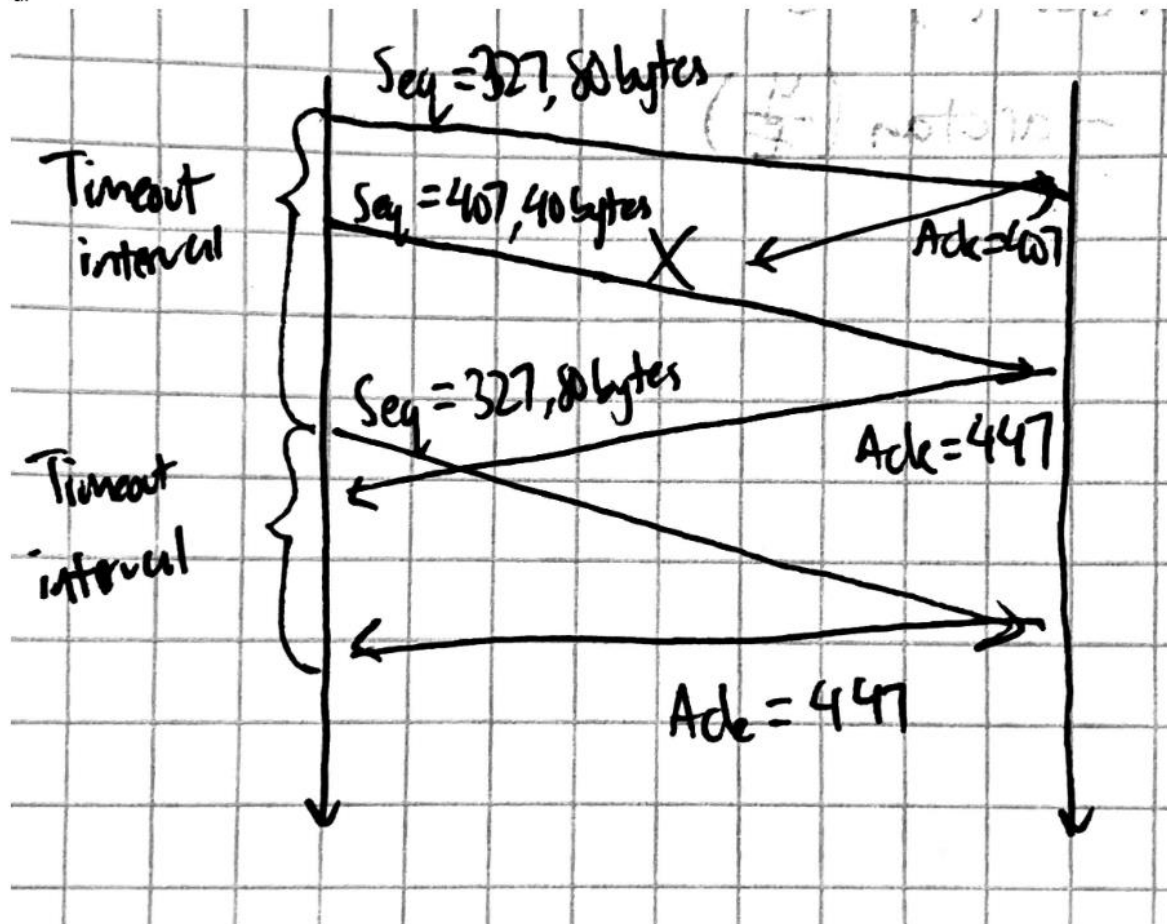 Seq = 327, 80 bytes
Timeout
interval
Seq = 407, 40 bytes
X
Ack=407
Seq = 327, 80 bytes
Ack = 447
Timeout
interval
Ack = 447